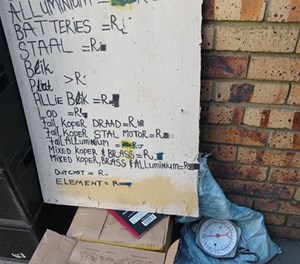 ALLUMINIUM =
BATTERIES =R.
STAAL =R.
Blik
>R.
ALLIE Blik =R
LOD = R.
Fail KOPER DRAAD =R.
Fail KOPER STAL MOTOR =R
Fail ALUMINIUM =R.
MIXED KOPER & BRASS =R.
MIXED KOPER, BRASS & ALLUMINIUM =R
OUTCAST = R.
ELEMENT = R